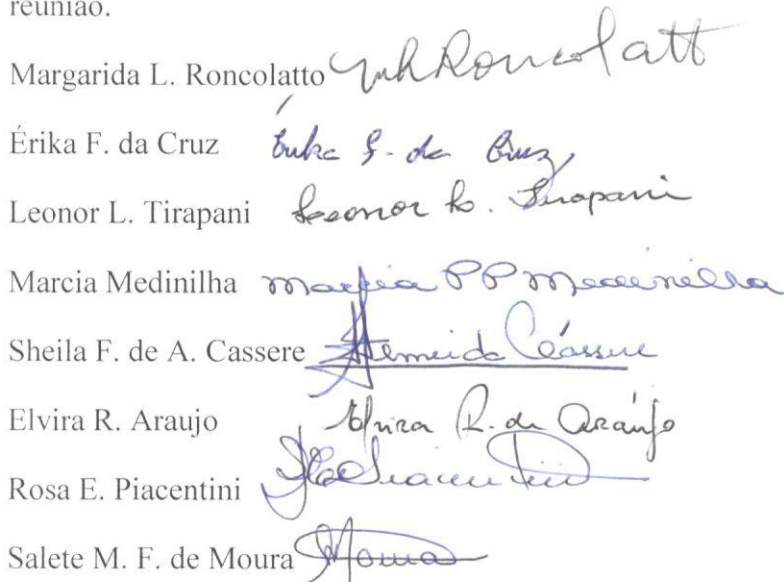 reunião.
Margarida L. Roncolatto Roncolatt
Érika F. da Cruz Erika F. da Cruz
Leonor L. Tirapani Leonor L. Tirapani
Marcia Medinilha Marcia PP Medinilha
Sheila F. de A. Cassere Almeida Cássere
Elvira R. Araujo Elvira R. de Araújo
Rosa E. Piacentini
Salete M. F. de Moura Moura